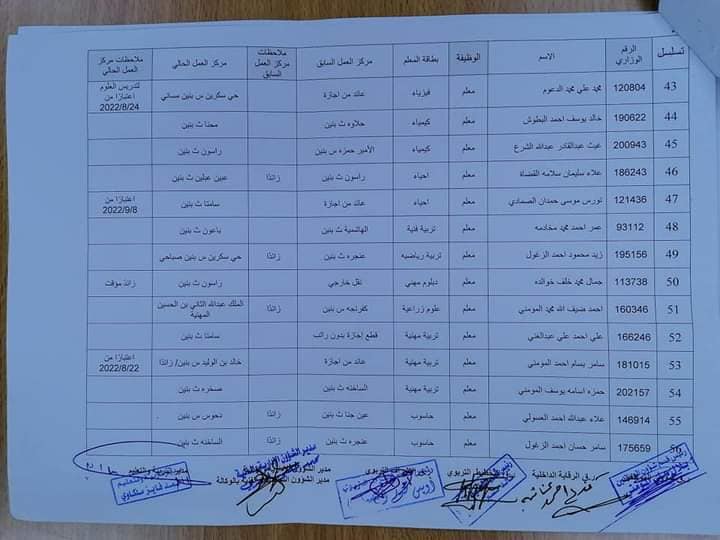 تسلسل الرقم الوزاري الاسم الوظيفة بطاقة المعلم مركز العمل السابق ملاحظات مركز العمل السابق مركز العمل الحالي ملاحظات مركز العمل الحالي
43 120804 محمد علي محمد الدعوم معلم فيزياء عائد من اجازة حي سكرين س بنين مسائي لتدريس العلوم اعتبارا من 2022/8/24
44 190622 خالد يوسف احمد البطوش معلم كيمياء حلاوه ث بنين محنا ث بنين
45 200943 غيث عبدالقادر عبدالله الشرع معلم كيمياء الأمير حمزه س بنين راسون ث بنين
46 186243 علاء سليمان سلامه القضاة معلم احياء راسون ث بنين زائدا عبين عبلين ث بنين
47 121436 نورس موسى حمدان الصمادي معلم احياء عائد من اجازة سامتا ث بنين اعتبارا من 2022/9/8
48 93112 عمر احمد محمد مخادمه معلم تربية فنية الهاشمية ث بنين باعون ث بنين
49 195156 زيد محمود احمد الزغول معلم تربية رياضيه عنجره ث بنين زائدا حي سكرين س بنين صباحي
50 113738 جمال محمد خلف خوالده معلم دبلوم مهني نقل خارجي راسون ث بنين زائد مؤقت
51 160346 احمد ضيف الله محمد المومني معلم علوم زراعية كفرنجه س بنين زائدا الملك عبدالله الثاني بن الحسين المهنية
52 166246 علي احمد علي عبدالغني معلم تربية مهنية قطع إجازة بدون راتب سامتا ث بنين
53 181015 سامر بسام احمد المومني معلم تربية مهنية عائد من اجازة خالد بن الوليد س بنين/ زائدا اعتبارا من 2022/8/22
54 202157 حمزه اسامه يوسف المومني معلم تربية مهنية الساخنه ث بنين صخره ث بنين
55 146914 علاء عبدالله احمد العسولي معلم حاسوب عين جنا ث بنين زائدا دحوس س بنين
175659 سامر حسان احمد الزغول معلم حاسوب عنجره ث بنين زائدا الساخنه ث بنين
الرقابة الداخلية التربوي مدير الشؤون مدير التربية والتعليم
مدير الشؤون بالوكالة